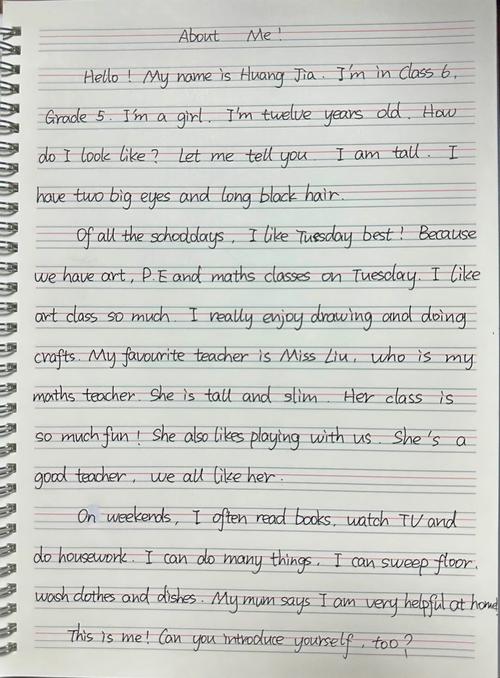 About Me!
Hello! My name is Huang Jia. I'm in Class 6,
Grade 5. I'm a girl. I'm twelve years old. How
do I look like? Let me tell you. I am tall. I
have two big eyes and long black hair.
Of all the schooldays, I like Tuesday best! Because
we have art, P.E and maths classes on Tuesday. I like
art class so much. I really enjoy drawing and doing
crafts. My favourite teacher is Miss Liu, who is my
maths teacher. She is tall and slim. Her class is
so much fun! She also likes playing with us. She's a
good teacher, we all like her.
On weekends, I often read books, watch TV and
do housework. I can do many things. I can sweep floor,
wash clothes and dishes. My mum says I am very helpful at home.
This is me! Can you introduce yourself, too?